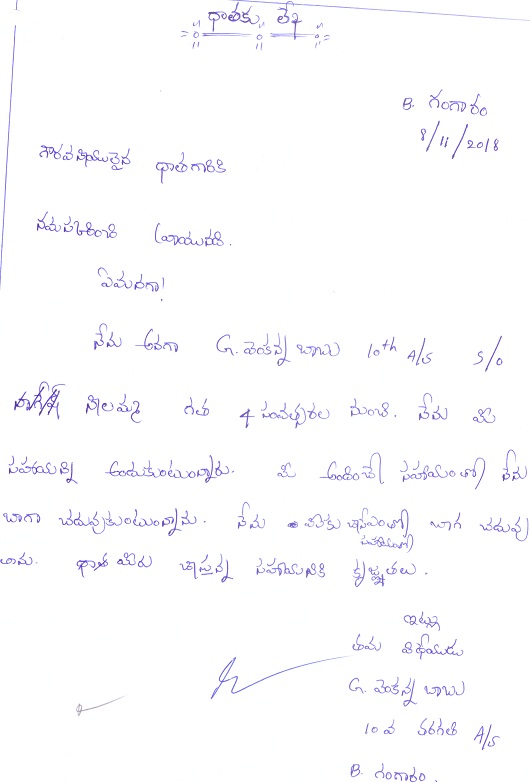 ధాతకు, లేఖ
B. గంగారం
8/11/2018
గౌరవనియులైన ధాతగారికి
నమస్కరించి వ్రాయునది.
ఏమనగా!
నేను అనగా G. వెంకన్న బాబు 10th A/S S/O
నిలమ్మ గత 4 సంవత్సరల నుంచి. నేను మి
సహయన్ని అందుకుంటున్నారు. మి అందించే సహాయంతో నేను
బాగా చదువుకుంటున్నాను. నేను మీకు బాగ చదువు
సహయంతో
తాను. ధాత మీరు చేస్తున్న సహాయనికి కృజ్ఞతలు.
ఇట్లు
తమ విధేయుడు
G. వెంకన్న బాబు
10 వ తరగతి A/S
B. గంగారం.